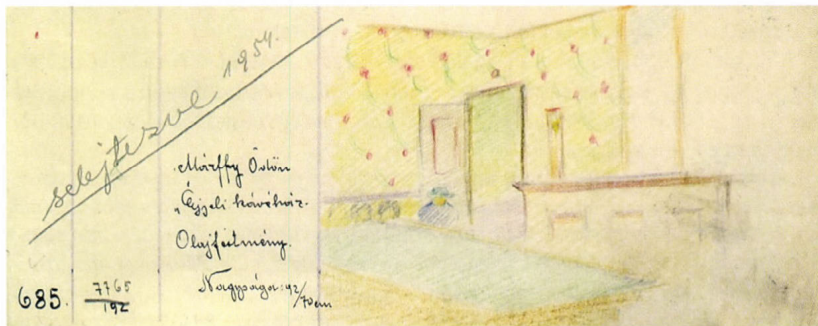 selejtezve 1954.
Márffy Ödön
"Éjjeli kávéház.
Olajfestmény.
Nagysága: 92/70 cm
685.
7765
192